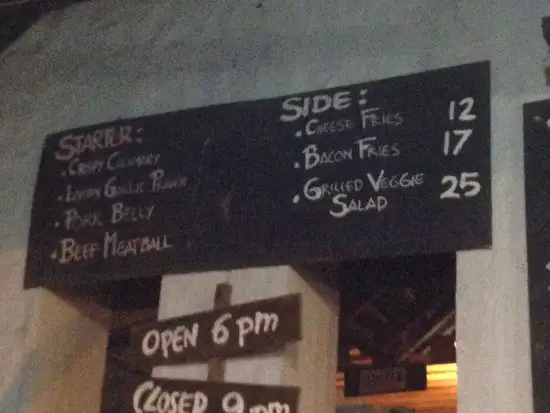 STARTER:
• CRISPY CALAMARY
• LEMON GARLIC PRAWN
• PORK BELLY
• BEEF MEATBALL
SIDE:
• CHEESE FRIES 12
• BACON FRIES 17
• GRILLED VEGGIE SALAD 25
OPEN 6 pm
CLOSED 9 pm